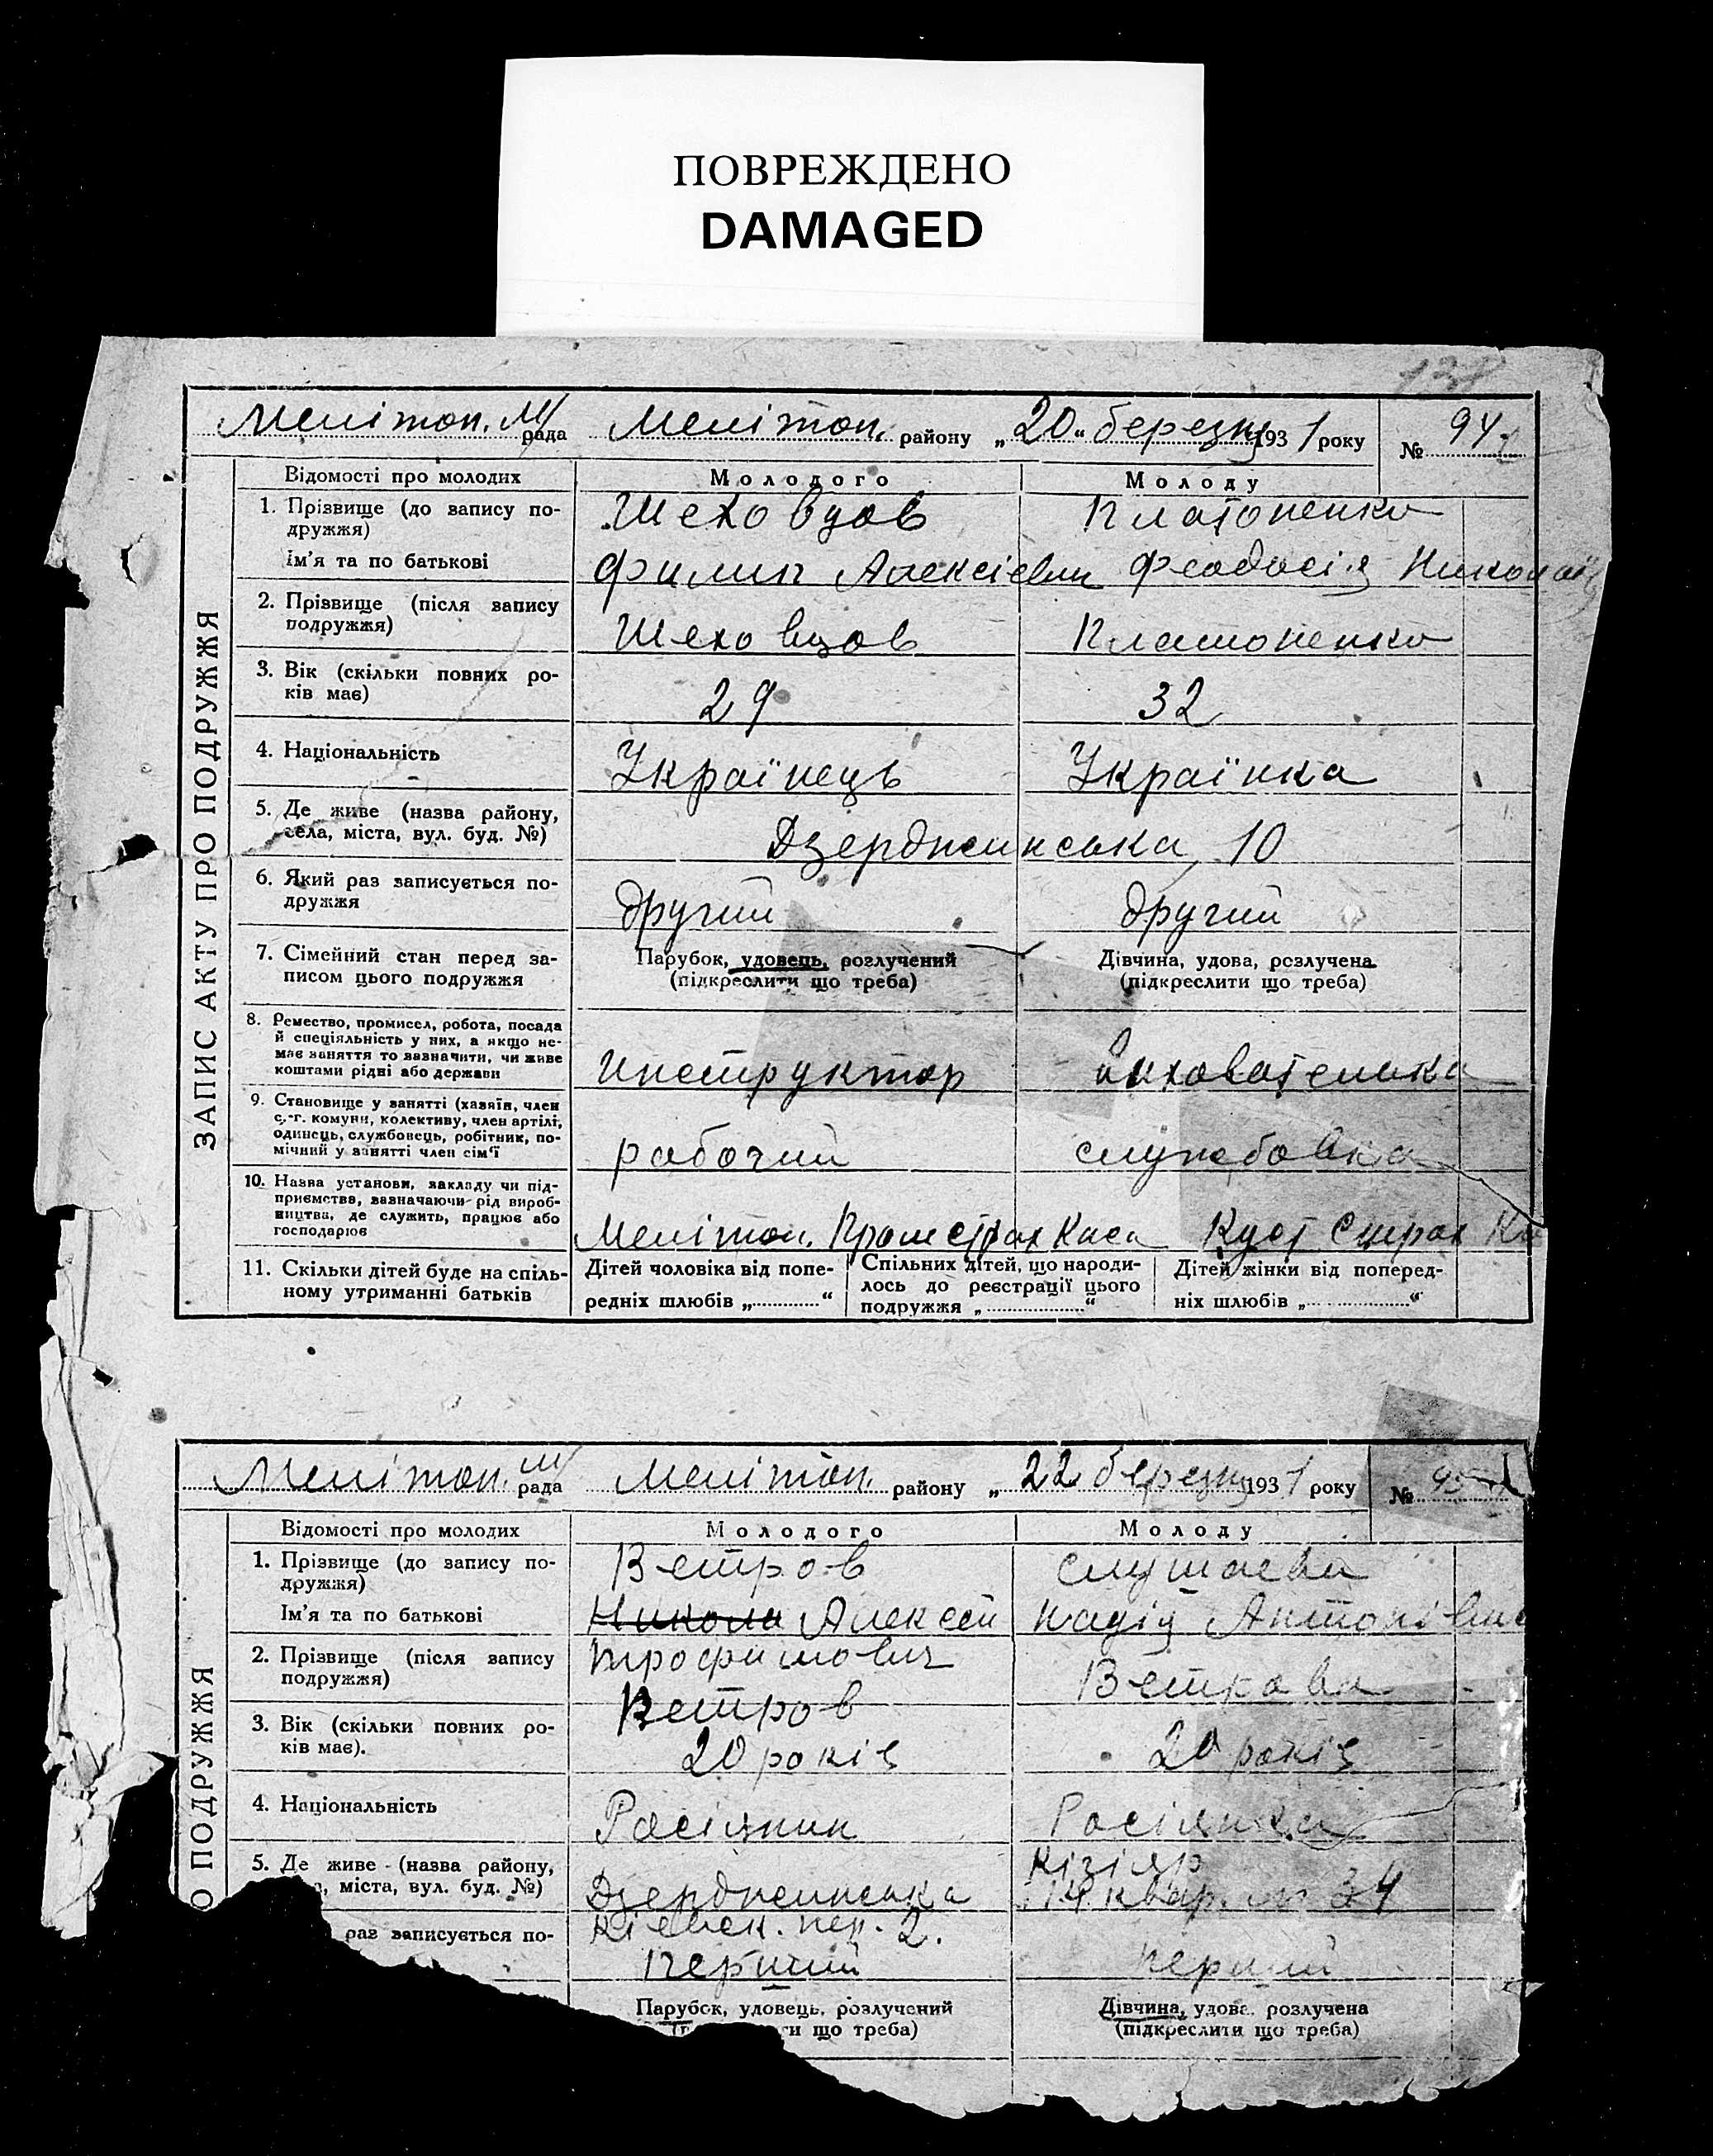 ПОВРЕЖДЕНО
DAMAGED
Мелітоп. М/рада Мелітоп. району „20“ березня 1931 року № 94
Відомості про молодих
Молодого
Молоду
ЗАПИС АКТУ ПРО ПОДРУЖЖЯ
1. Прізвище (до запису по-
дружжя)
Шеховцов
Платоненко
Ім'я та по батькові
Филип Алексієвич
Феодосія
2. Прізвище (після запису
подружжя)
Шеховцов
Платоненко
3. Вік (скільки повних ро-
ків має)
29
32
4. Національність
Українець
Українка
5. Де живе (назва району,
села, міста, вул. буд. №)
Дзерджинська, 10
6. Який раз записується по-
дружжя
другий
другий
7. Сімейний стан перед за-
писом цього подружжя
Парубок, удовець, розлучений
(підкреслити що треба)
Дівчина, удова, розлучена
(підкреслити що треба)
8. Ремество, промисел, робота, посада
й спеціяльність у них, а якщо не-
має заняття то зазначити, чи живе
коштами рідні або держави
Инструктор
9. Становище у занятті (хазяїн, член
с.-г. комуни, колективу, член артілі,
одинець, службовець, робітник, по-
мічний у занятті член сім'ї
рабочий
службовка
10. Назва установи, закладу чи під-
приємства, зазначаючи рід вироб-
ництва, де служить, працює або
господарює
Мелітоп. Промстрах Каса
Куст Страх
11. Скільки дітей буде на спіль-
ному утриманні батьків
Дітей чоловіка від попе-
редніх шлюбів „............“
Спільних дітей, що народи-
лось до реєстрації цього
подружжя „............“
Дітей жінки від поперед-
ніх шлюбів „............“
Мелітоп. М/рада Мелітоп. району „22 березня 1931 року № 95
Відомості про молодих
Молодого
Молоду
О ПОДРУЖЖЯ
1. Прізвище (до запису по-
дружжя)
Ветров
Слушаева
Ім'я та по батькові
Никола Алексей
Надія
2. Прізвище (після запису
подружжя)
Трофимович
Ветров
Ветрова
3. Вік (скільки повних ро-
ків має).
20 років
20 років
4. Національність
Росіянин
Росіянка
5. Де живе (назва району,
а, міста, вул. буд. №)
Дзерджинська
Кіевск. пер. 2.
Кізіяр
14 квар. № 34
раз записується по-
перший
перший
Парубок, удовець, розлучений
ти що треба)
Дівчина, удова, розлучена
(підкреслити що треба)